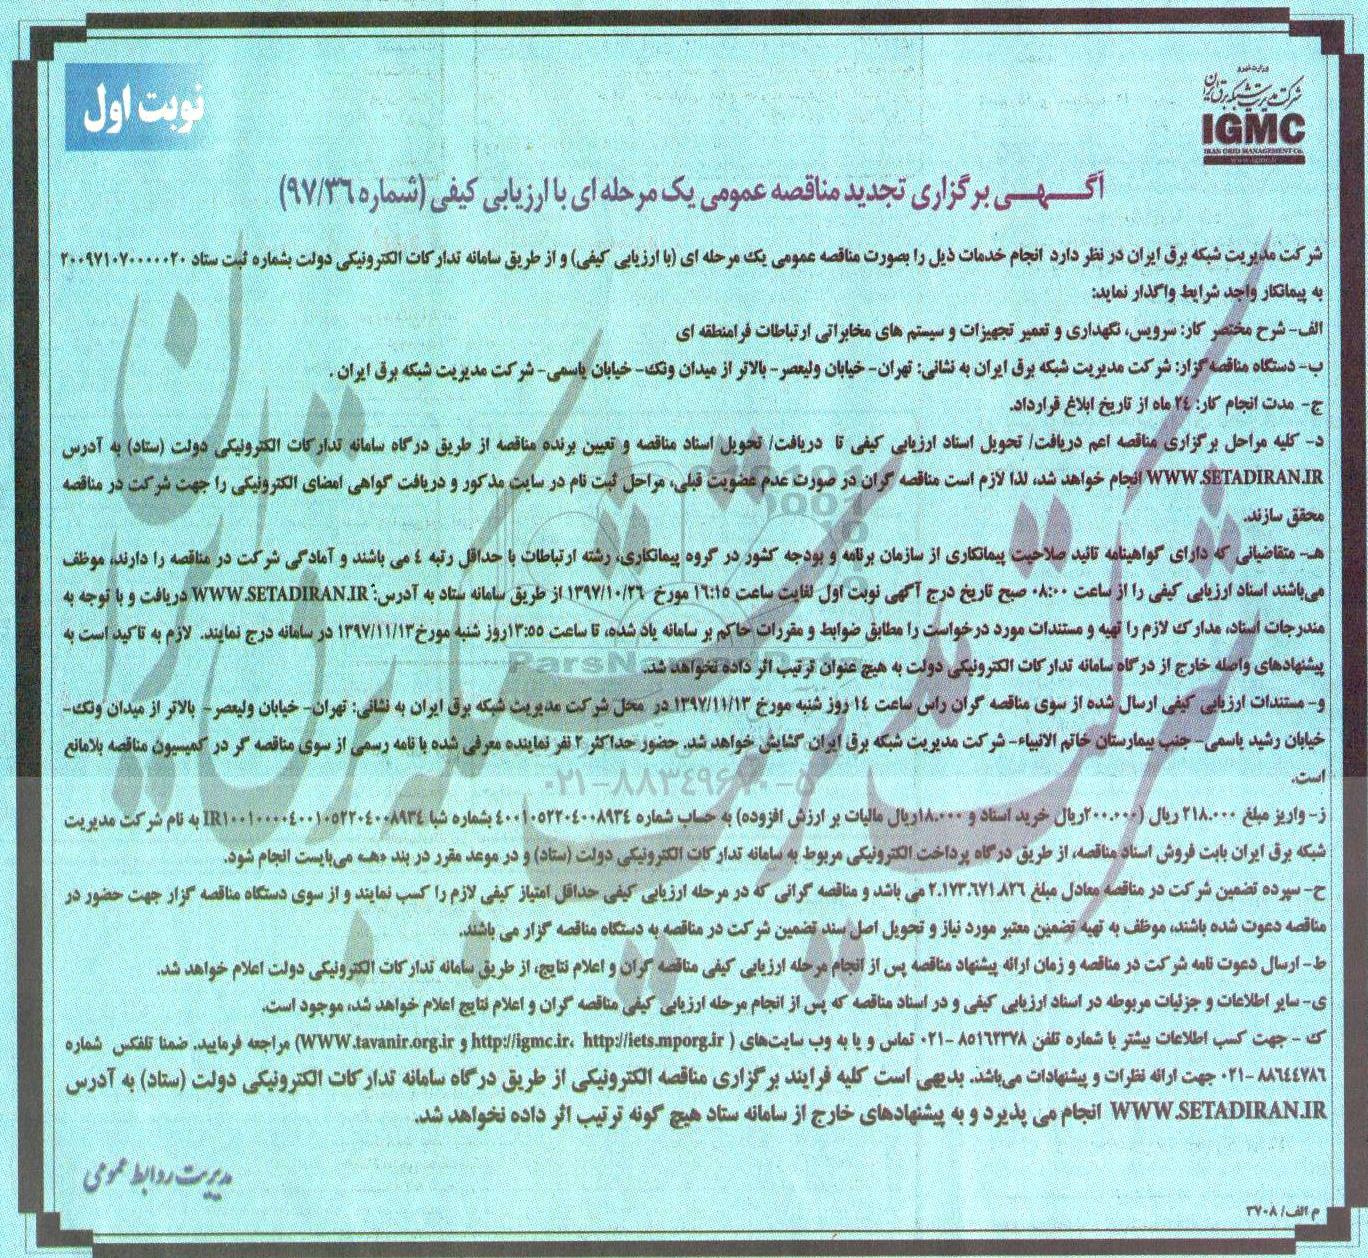 وزارت نیرو
شرکت مدیریت شبکه برق ایران
IGMC
IRAN GRID MANAGEMENT Co.
www.igmc.ir
نوبت اول
آگـــهـــی برگزاری تجدید مناقصه عمومی یک مرحله ای با ارزیابی کیفی (شماره ۹۷/۳۶)
شرکت مدیریت شبکه برق ایران در نظر دارد انجام خدمات ذیل را بصورت مناقصه عمومی یک مرحله ای (با ارزیابی کیفی) و از طریق سامانه تدارکات الکترونیکی دولت بشماره ثبت ستاد ۲۰۰۹۷۱۰۷۰۰۰۰۰۲۰
به پیمانکار واجد شرایط واگذار نماید:
الف- شرح مختصر کار: سرویس، نگهداری و تعمیر تجهیزات و سیستم های مخابراتی ارتباطات فرامنطقه ای
ب- دستگاه مناقصه گزار: شرکت مدیریت شبکه برق ایران به نشانی: تهران- خیابان ولیعصر- بالاتر از میدان ونک- خیابان یاسمی- شرکت مدیریت شبکه برق ایران .
ج- مدت انجام کار: ۲٤ ماه از تاریخ ابلاغ قرارداد.
د- کلیه مراحل برگزاری مناقصه اعم دریافت/ تحویل اسناد ارزیابی کیفی تا دریافت/ تحویل اسناد مناقصه و تعیین برنده مناقصه از طریق درگاه سامانه تدارکات الکترونیکی دولت (ستاد) به آدرس
WWW.SETADIRAN.IR انجام خواهد شد، لذا لازم است مناقصه گران در صورت عدم عضویت قبلی، مراحل ثبت نام در سایت مذکور و دریافت گواهی امضای الکترونیکی را جهت شرکت در مناقصه
محقق سازند.
هـ- متقاضیانی که دارای گواهینامه تائید صلاحیت پیمانکاری از سازمان برنامه و بودجه کشور در گروه پیمانکاری، رشته ارتباطات با حداقل رتبه ٤ می باشند و آمادگی شرکت در مناقصه را دارند، موظف
می‌باشند اسناد ارزیابی کیفی را از ساعت ۰۸:۰۰ صبح تاریخ درج آگهی نوبت اول لغایت ساعت ۱۶:۱۵ مورخ ۱۳۹۷/۱۰/۲۶ از طریق سامانه ستاد به آدرس: WWW.SETADIRAN.IR دریافت و با توجه به
مندرجات اسناد، مدارک لازم را تهیه و مستندات مورد درخواست را مطابق ضوابط و مقررات حاکم بر سامانه یاد شده، تا ساعت ۱۳:۵۵روز شنبه مورخ۱۳۹۷/۱۱/۱۳ در سامانه درج نمایند. لازم به تاکید است به
پیشنهادهای واصله خارج از درگاه سامانه تدارکات الکترونیکی دولت به هیچ عنوان ترتیب اثر داده نخواهد شد.
و- مستندات ارزیابی کیفی ارسال شده از سوی مناقصه گران راس ساعت ۱٤ روز شنبه مورخ ۱۳۹۷/۱۱/۱۳ در محل شرکت مدیریت شبکه برق ایران به نشانی: تهران- خیابان ولیعصر- بالاتر از میدان ونک-
خیابان رشید یاسمی- جنب بیمارستان خاتم الانبیاء- شرکت مدیریت شبکه برق ایران گشایش خواهد شد. حضور حداکثر ۲ نفر نماینده معرفی شده با نامه رسمی از سوی مناقصه گر در کمیسیون مناقصه بلامانع
است.
ز- واریز مبلغ ۲۱۸.۰۰۰ ریال (۲۰۰.۰۰۰ریال خرید اسناد و ۱۸.۰۰۰ریال مالیات بر ارزش افزوده) به حساب شماره ٤۰۰۱۰۵۲۲۰٤۰۰۸۹۳٤ بشماره شبا IR۱۰۰۱۰۰۰۰٤۰۰۱۰۵۲۲۰٤۰۰۸۹۳٤ به نام شرکت مدیریت
شبکه برق ایران بابت فروش اسناد مناقصه، از طریق درگاه پرداخت الکترونیکی مربوط به سامانه تدارکات الکترونیکی دولت (ستاد) و در موعد مقرر در بند «هـ» می‌بایست انجام شود.
ح- سپرده تضمین شرکت در مناقصه معادل مبلغ ۲.۱۷۳.۶۷۱.۸۲۶ می باشد و مناقصه گرانی که در مرحله ارزیابی کیفی حداقل امتیاز کیفی لازم را کسب نمایند و از سوی دستگاه مناقصه گزار جهت حضور در
مناقصه دعوت شده باشند، موظف به تهیه تضمین معتبر مورد نیاز و تحویل اصل سند تضمین شرکت در مناقصه به دستگاه مناقصه گزار می باشند.
ط- ارسال دعوت نامه شرکت در مناقصه و زمان ارائه پیشنهاد مناقصه پس از انجام مرحله ارزیابی کیفی مناقصه گران و اعلام نتایج، از طریق سامانه تدارکات الکترونیکی دولت اعلام خواهد شد.
ی- سایر اطلاعات و جزئیات مربوطه در اسناد ارزیابی کیفی و در اسناد مناقصه که پس از انجام مرحله ارزیابی کیفی مناقصه گران و اعلام نتایج اعلام خواهد شد، موجود است.
ک - جهت کسب اطلاعات بیشتر با شماره تلفن ۸۵۱۶۲۳۷۸ -۰۲۱ تماس و یا به وب سایت‌های ( http://igmc.ir، http://iets.mporg.ir و WWW.tavanir.org.ir) مراجعه فرمایید. ضمنا تلفکس شماره
۸۸٦٤٤۷۸٦ -۰۲۱ جهت ارائه نظرات و پیشنهادات می‌باشد. بدیهی است کلیه فرایند برگزاری مناقصه الکترونیکی از طریق درگاه سامانه تدارکات الکترونیکی دولت (ستاد) به آدرس
WWW.SETADIRAN.IR انجام می پذیرد و به پیشنهادهای خارج از سامانه ستاد هیچ گونه ترتیب اثر داده نخواهد شد.
مدیریت روابط عمومی
م الف/ ۳۷۰۸